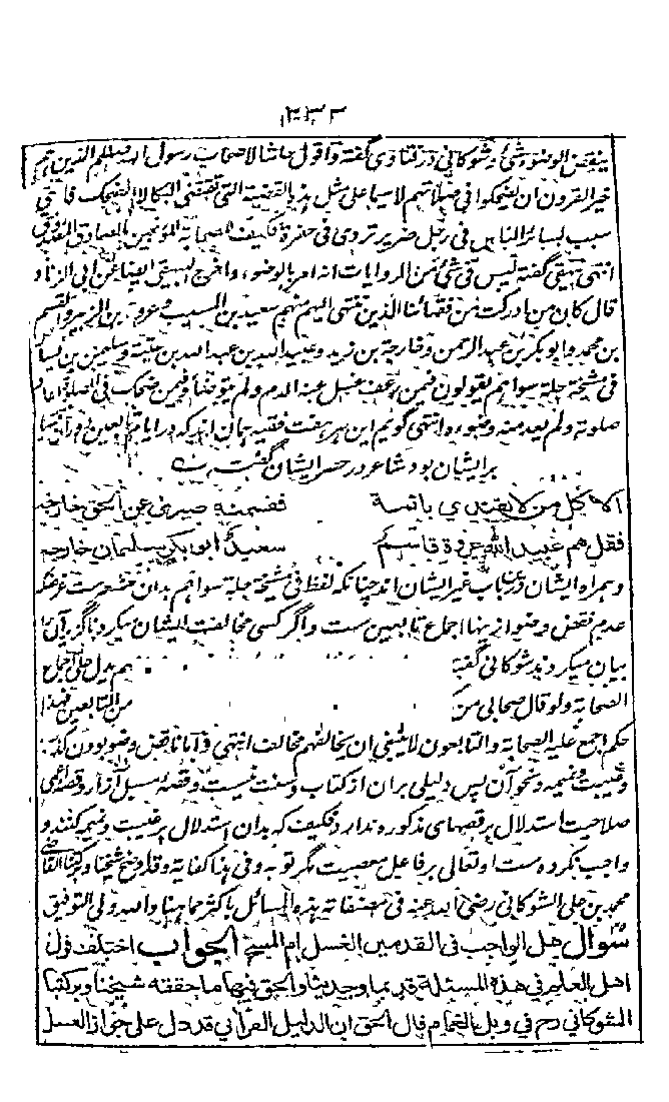 ۲۳۲
ینقض الوضوء شئ أو شوکانی در فتاوی گفته واقول حاشا لاصحاب رسول الله صللم الذین هم
خیر القرون ان یضحکوا فی صلاتهم لاسیما علی مثل هذه القضیة التی تقتضی البکا لا الضحک فاتی
سبب لسائر الناس فی رجل ضریر تردی فی حفرة فکیف الصحابة المؤمنین الصادق
انتهی بیهقی گفته لیس فی شئ من الروایات انه امر بالوضوء، واخرج البیهقی ایضا عن ابی الزناد
قال کان من ادرکت من فقهائنا الذین ننتهی الیهم منهم سعید بن المسیب وعروة بن الزبیر والقسم
بن محمد وابو بکر بن عبد الرحمن وخارجة بن زید وعبید الله بن عبد الله بن عتبة وسلیمن بن یسار
فی مشیخة جلة سواهم یقولون فیمن رعف غسل عنه الدم ولم یتوضأ وفیمن ضحک فی الصلوة اعاد
صلوته ولم یعد منه وضوء، وانتهی گویم این هر هفت فقیه همان اند که در ایام تابعین
بر ایشان بود شاعر در حصر ایشان گفته
الا کل من لا یقتدی بائمة فقسمته ضیزی عن الحق خارجه
فقل هم عبید الله عروة قاسم سعید ابو بکر سلیمان خارجه
وهمراه ایشان درین باب غیر ایشان اند چنانکه لفظ فی مشیخة جلة سواهم بدان مشعرست غرضکه
عدم نقض وضو ازینها اجماع تابعین ست واگر کسی مخالفت ایشان میکرد ناگزیر آن را
بیان میکردند شوکانی گفته هم یدل علی اجماع
الصحابة ولو قال صحابی من من التابعین فهذا
حکم اجمع علیه الصحابة والتابعون لا ینبغی ان یخالفهم مخالف انتهی وآما ناقض وضو بودن کذب
وغیبت ونمیمه ونحو آن پس دلیلی بران از کتاب وسنت نیست وقصه مسبل ازار وقصه اعمی
صلاحیت استدلال بر قصهای مذکوره ندارد فکیف که بدان استدلال بر غیبت ونمیمه کنند و
واجب نکرده ست او تعالی بر فاعل معصیت مگر توبه وفی هذا کفایة وقد اوضح شیخنا وبرکتنا القاضی
محمد بن علی الشوکانی رضی الله عنه فی مصنفاته هذه المسائل باکثر مما هنا والله ولی التوفیق
سوال هل الواجب فی القدمین الغسل ام المسح الجواب اختلف قول
اهل العلم فی هذه المسئلة قدیما وحدیثا والحق فیها ما حققه شیخنا وبرکتنا
الشوکانی رح فی وبل الغمام قال الحق ان الدلیل القرآنی قد دل علی جواز الغسل